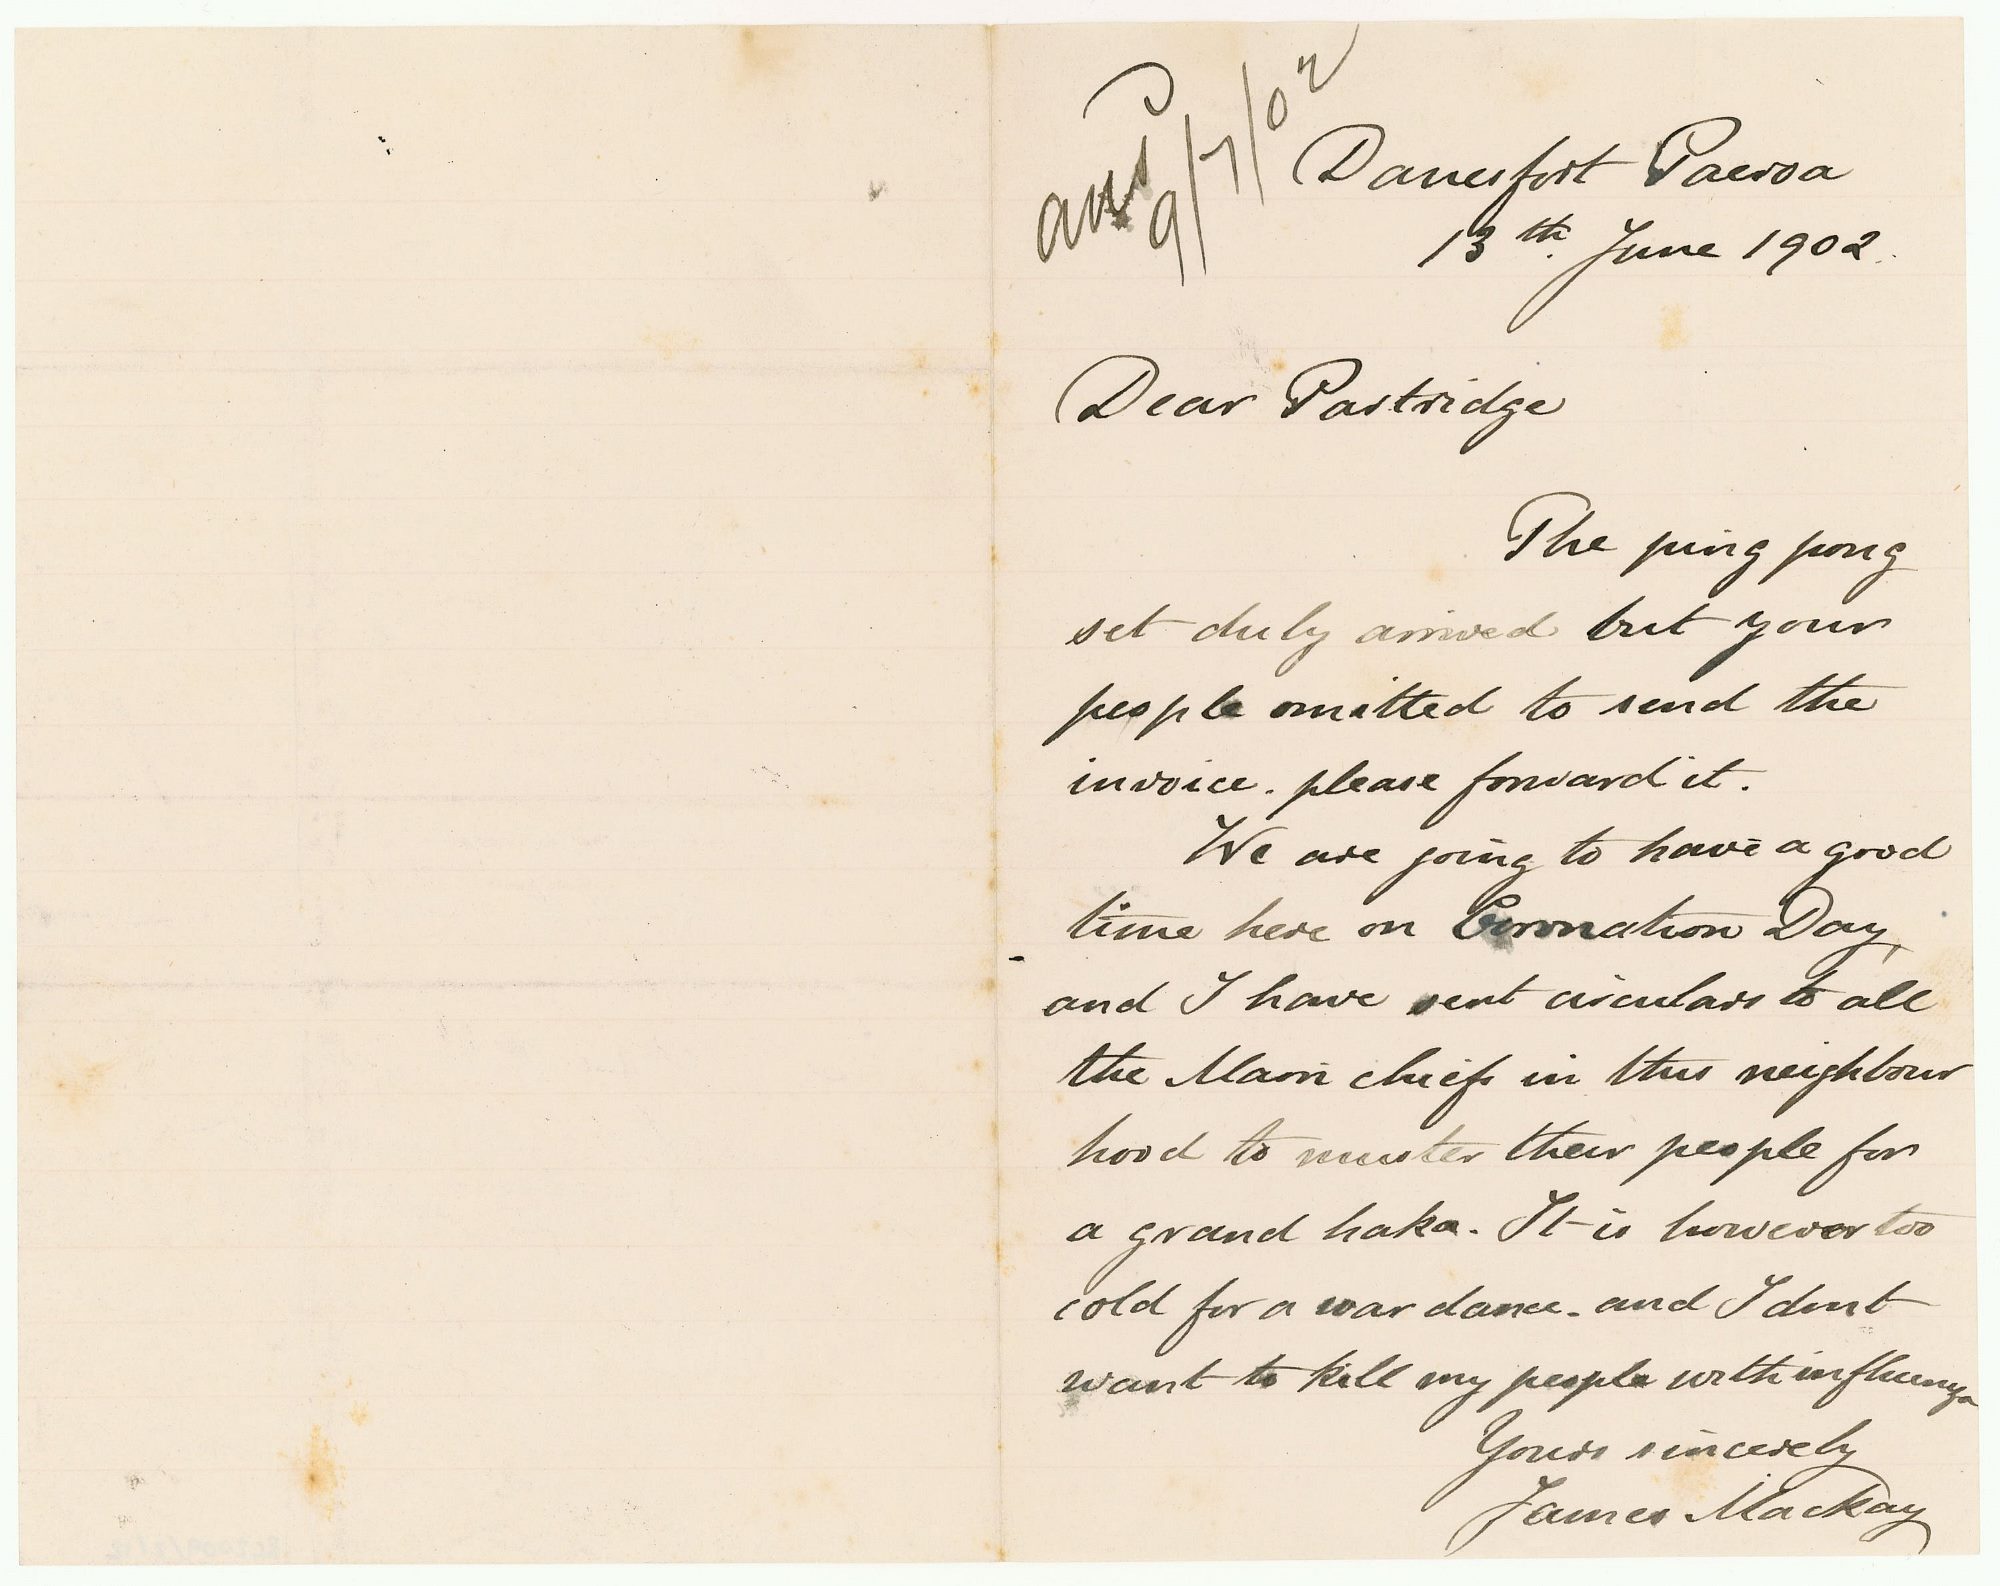 ansd
9/7/02
Danesfort Paeroa
13th. June 1902.
Dear Partridge
The ping pong
set duly arrived but your
people omitted to send the
invoice. please forward it.
We are going to have a good
time here on Coronation Day,
and I have sent circulars to all
the Maori chiefs in this neighbour
hood to muster their people for
a grand haka. It is however too
cold for a war dance. and I dont
want to kill my people with influenza
Yours sincerely
James Mackay